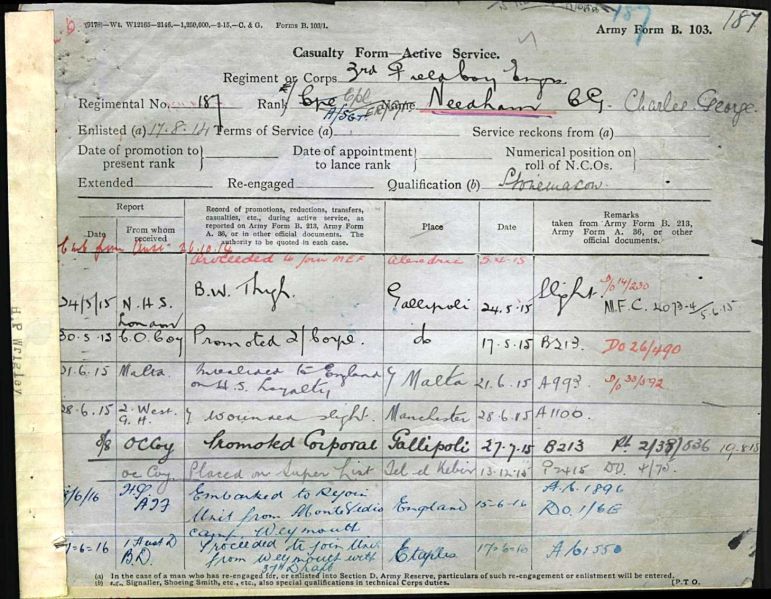 9179—Wt. W12165—2146.—1,250,000.—2-15.—C. & G. Forms B. 103/1.
187
187
Army Form B. 103.
Casualty Form—Active Service.
Regiment or Corps 3rd Field Coy Engrs
Regimental No. 187 Rank Cpl Cpl A/Sgt. Name Needham C.G. Charles George.
Enlisted (a) 17.8.14 Terms of Service (a) Service reckons from (a)
Date of promotion to present rank Date of appointment to lance rank Numerical position on roll of N.C.Os.
Extended Re-engaged Qualification (b) Stonemason
Report
Date From whom received
Record of promotions, reductions, transfers, casualties, etc., during active service, as reported on Army Form B. 213, Army Form A. 36, or in other official documents. The authority to be quoted in each case.
Place
Date
Remarks taken from Army Form B. 213, Army Form A. 36, or other official documents.
Emb from Aust. 26.10.14
Proceeded to join MEF Alexandria 5.4.15
24/5/15 N.H.S. London B.W. Thigh. Gallipoli 24.5.15 Slight. D/o 14/230 M.F.C. 5.6.15
30.5.15 C.O. Coy Promoted 2/Corpl. do 17.5.15 B213 DO 26/490
21.6.15 Malta Invalided to England on H.S. Loyalty Malta 21.6.15 A993
28.6.15 2. West. G.H. wounded slight. Manchester 28.6.15 A1100.
8/8 OC Coy Promoted Corporal Gallipoli 27.7.15 B213 19.8.15
OC Coy Placed on Super List Tel el Kebir 13.12.15 DO. 4/70.
6/16 H.Q. AIF Embarked to Rejoin Unit from Monte Video Camp Weymouth England 15-6-16 A/b. 1896 R.D.O. 1/6E
-6-16 1 Aust D B.D. Proceeded to join Unit from Weymouth with 37th Draft Etaples 17-6-16 A/b1550
(a) In the case of a man who has re-engaged for, or enlisted into Section D, Army Reserve, particulars of such re-engagement or enlistment will be entered.
(b) e.g., Signaller, Shoeing Smith, etc., etc., also special qualifications in technical Corps duties. (P.T.O.
H P Wrigley